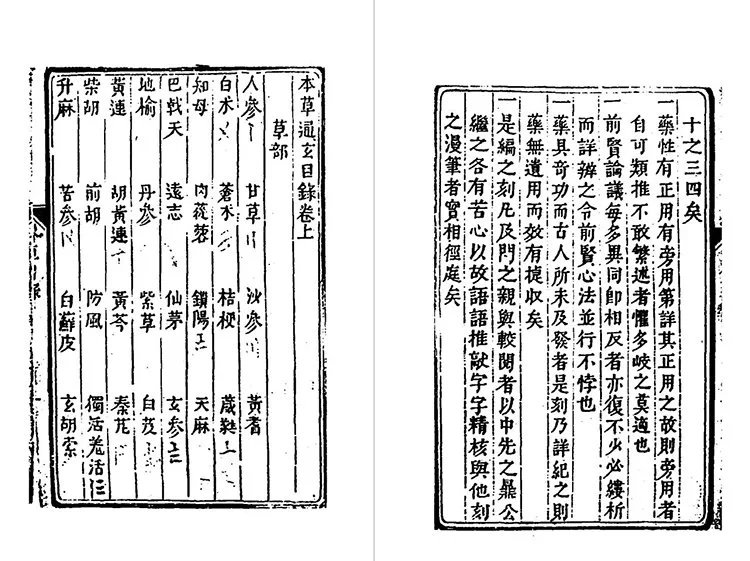 十之三四矣
一藥性有正用有旁用第詳其正用之故則旁用者
自可類推不敢繁述者懼多岐之莫適也
一前賢論議每多異同卽相反者亦復不少必縷析
而詳辨之令前賢心法並行不悖也
一藥具奇功而古人所未及發者是刻乃詳紀之則
藥無遺用而效有捷收矣
一是編之刻凢及門之親與較閱者以中先之鼎公
繼之各有苦心以故語語推敲字字精核與他刻
之漫筆者實相徑庭矣
本草通玄目錄卷上
草部
人參 甘草 沙參 黃耆
白朮 蒼朮 桔梗 葳蕤
知母 肉蓯蓉 鎖陽 天麻
巴戟天 遠志 仙茅 玄參
地榆 丹參 紫草 白芨
黃連 胡黃連 黃芩 秦艽
柴胡 前胡 防風 獨活羌活
升麻 苦參 白蘚皮 玄胡索